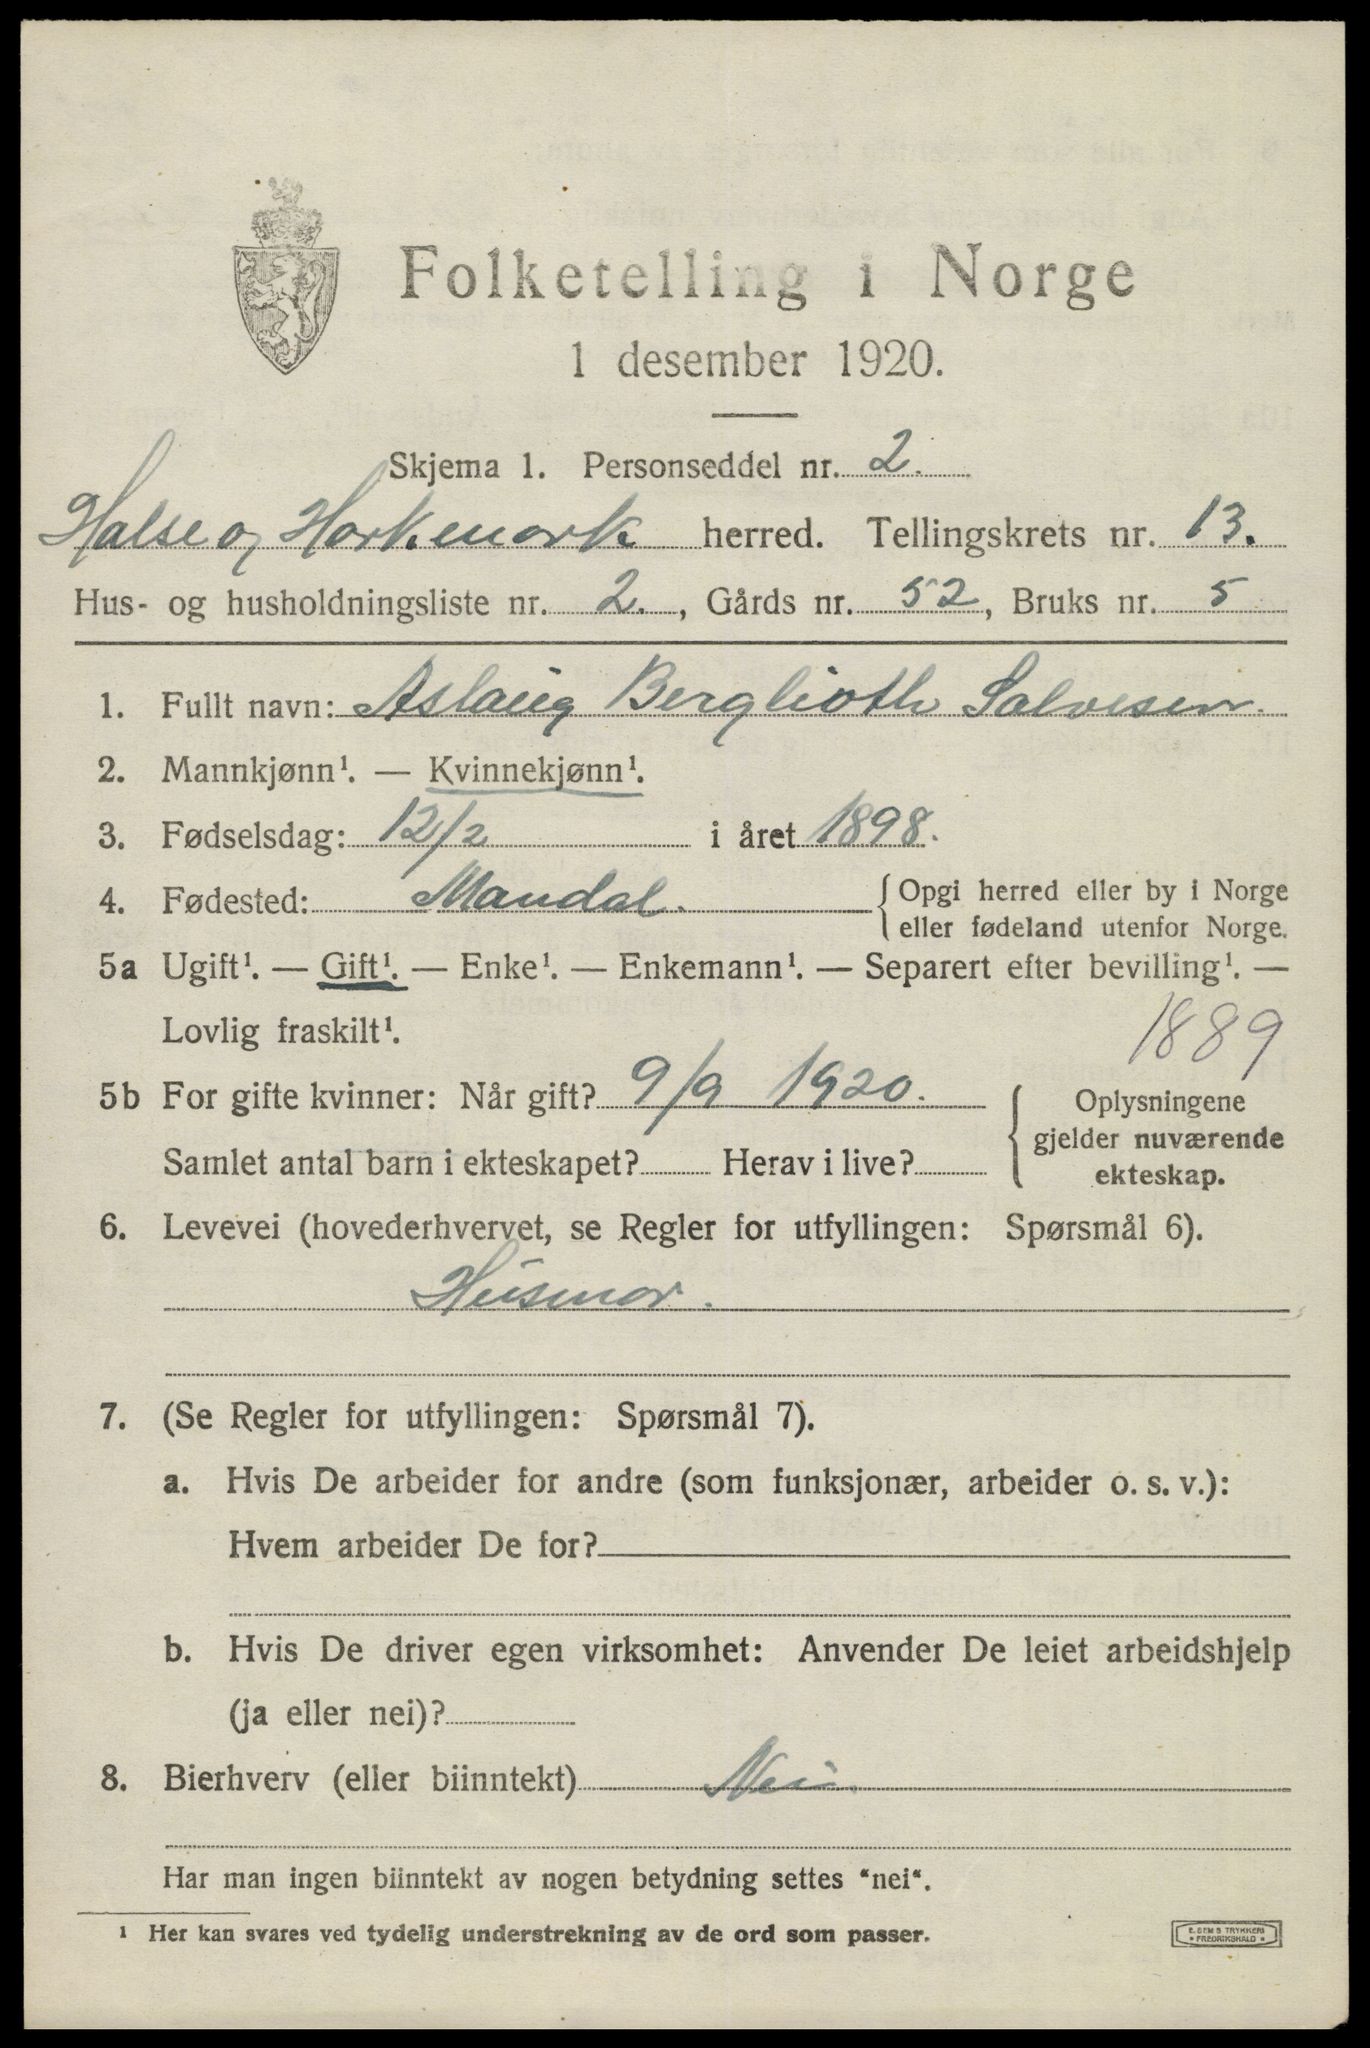 Folketelling i Norge
1 desember 1920.
Skjema 1. Personseddel nr. 2.
Halse og Harkmark herred. Tellingskrets nr. 13.
Hus- og husholdningsliste nr. 2., Gårds nr. 52, Bruks nr. 5
1. Fullt navn: Aslaug Berglioth Salvesen.
2. Mannkjønn¹. — Kvinnekjønn¹.
3. Fødselsdag: 12/2 i året 1898.
4. Fødested: Mandal. { Opgi herred eller by i Norge
eller fødeland utenfor Norge.
5a Ugift¹. — Gift¹. — Enke¹. — Enkemann¹. — Separert efter bevilling¹. —
Lovlig fraskilt¹.
1889
5b For gifte kvinner: Når gift? 9/9 1920.
Samlet antal barn i ekteskapet? Herav i live?
{ Oplysningene
gjelder nuværende
ekteskap.
6. Levevei (hovederhvervet, se Regler for utfyllingen: Spørsmål 6).
Husmor.
7. (Se Regler for utfyllingen: Spørsmål 7).
a. Hvis De arbeider for andre (som funksjonær, arbeider o. s. v.):
Hvem arbeider De for?
b. Hvis De driver egen virksomhet: Anvender De leiet arbeidshjelp
(ja eller nei)?
8. Bierhverv (eller biinntekt) Nei.
Har man ingen biinntekt av nogen betydning settes “nei“.
¹ Her kan svares ved tydelig understrekning av de ord som passer.
E. SEMS TRYKKERI
* FREDRIKSHALD *